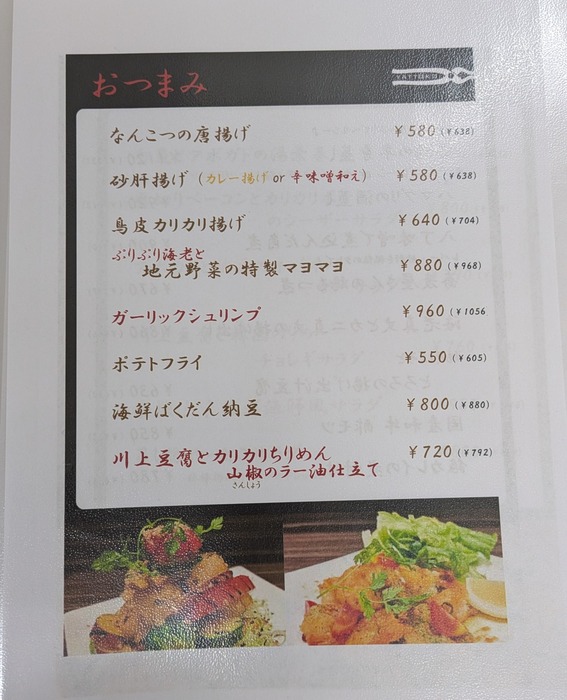 おつまみ
なんこつの唐揚げ ¥580(¥638)
砂肝揚げ(カレー揚げ or 辛味噌和え) ¥580(¥638)
鳥皮カリカリ揚げ ¥640(¥704)
ぷりぷり海老と
地元野菜の特製マヨマヨ ¥880(¥968)
ガーリックシュリンプ ¥960(¥1056
ポテトフライ ¥550(¥605)
海鮮ばくだん納豆 ¥800(¥880)
川上豆腐とカリカリちりめん
山椒のラー油仕立て ¥720(¥792)
さんしょう